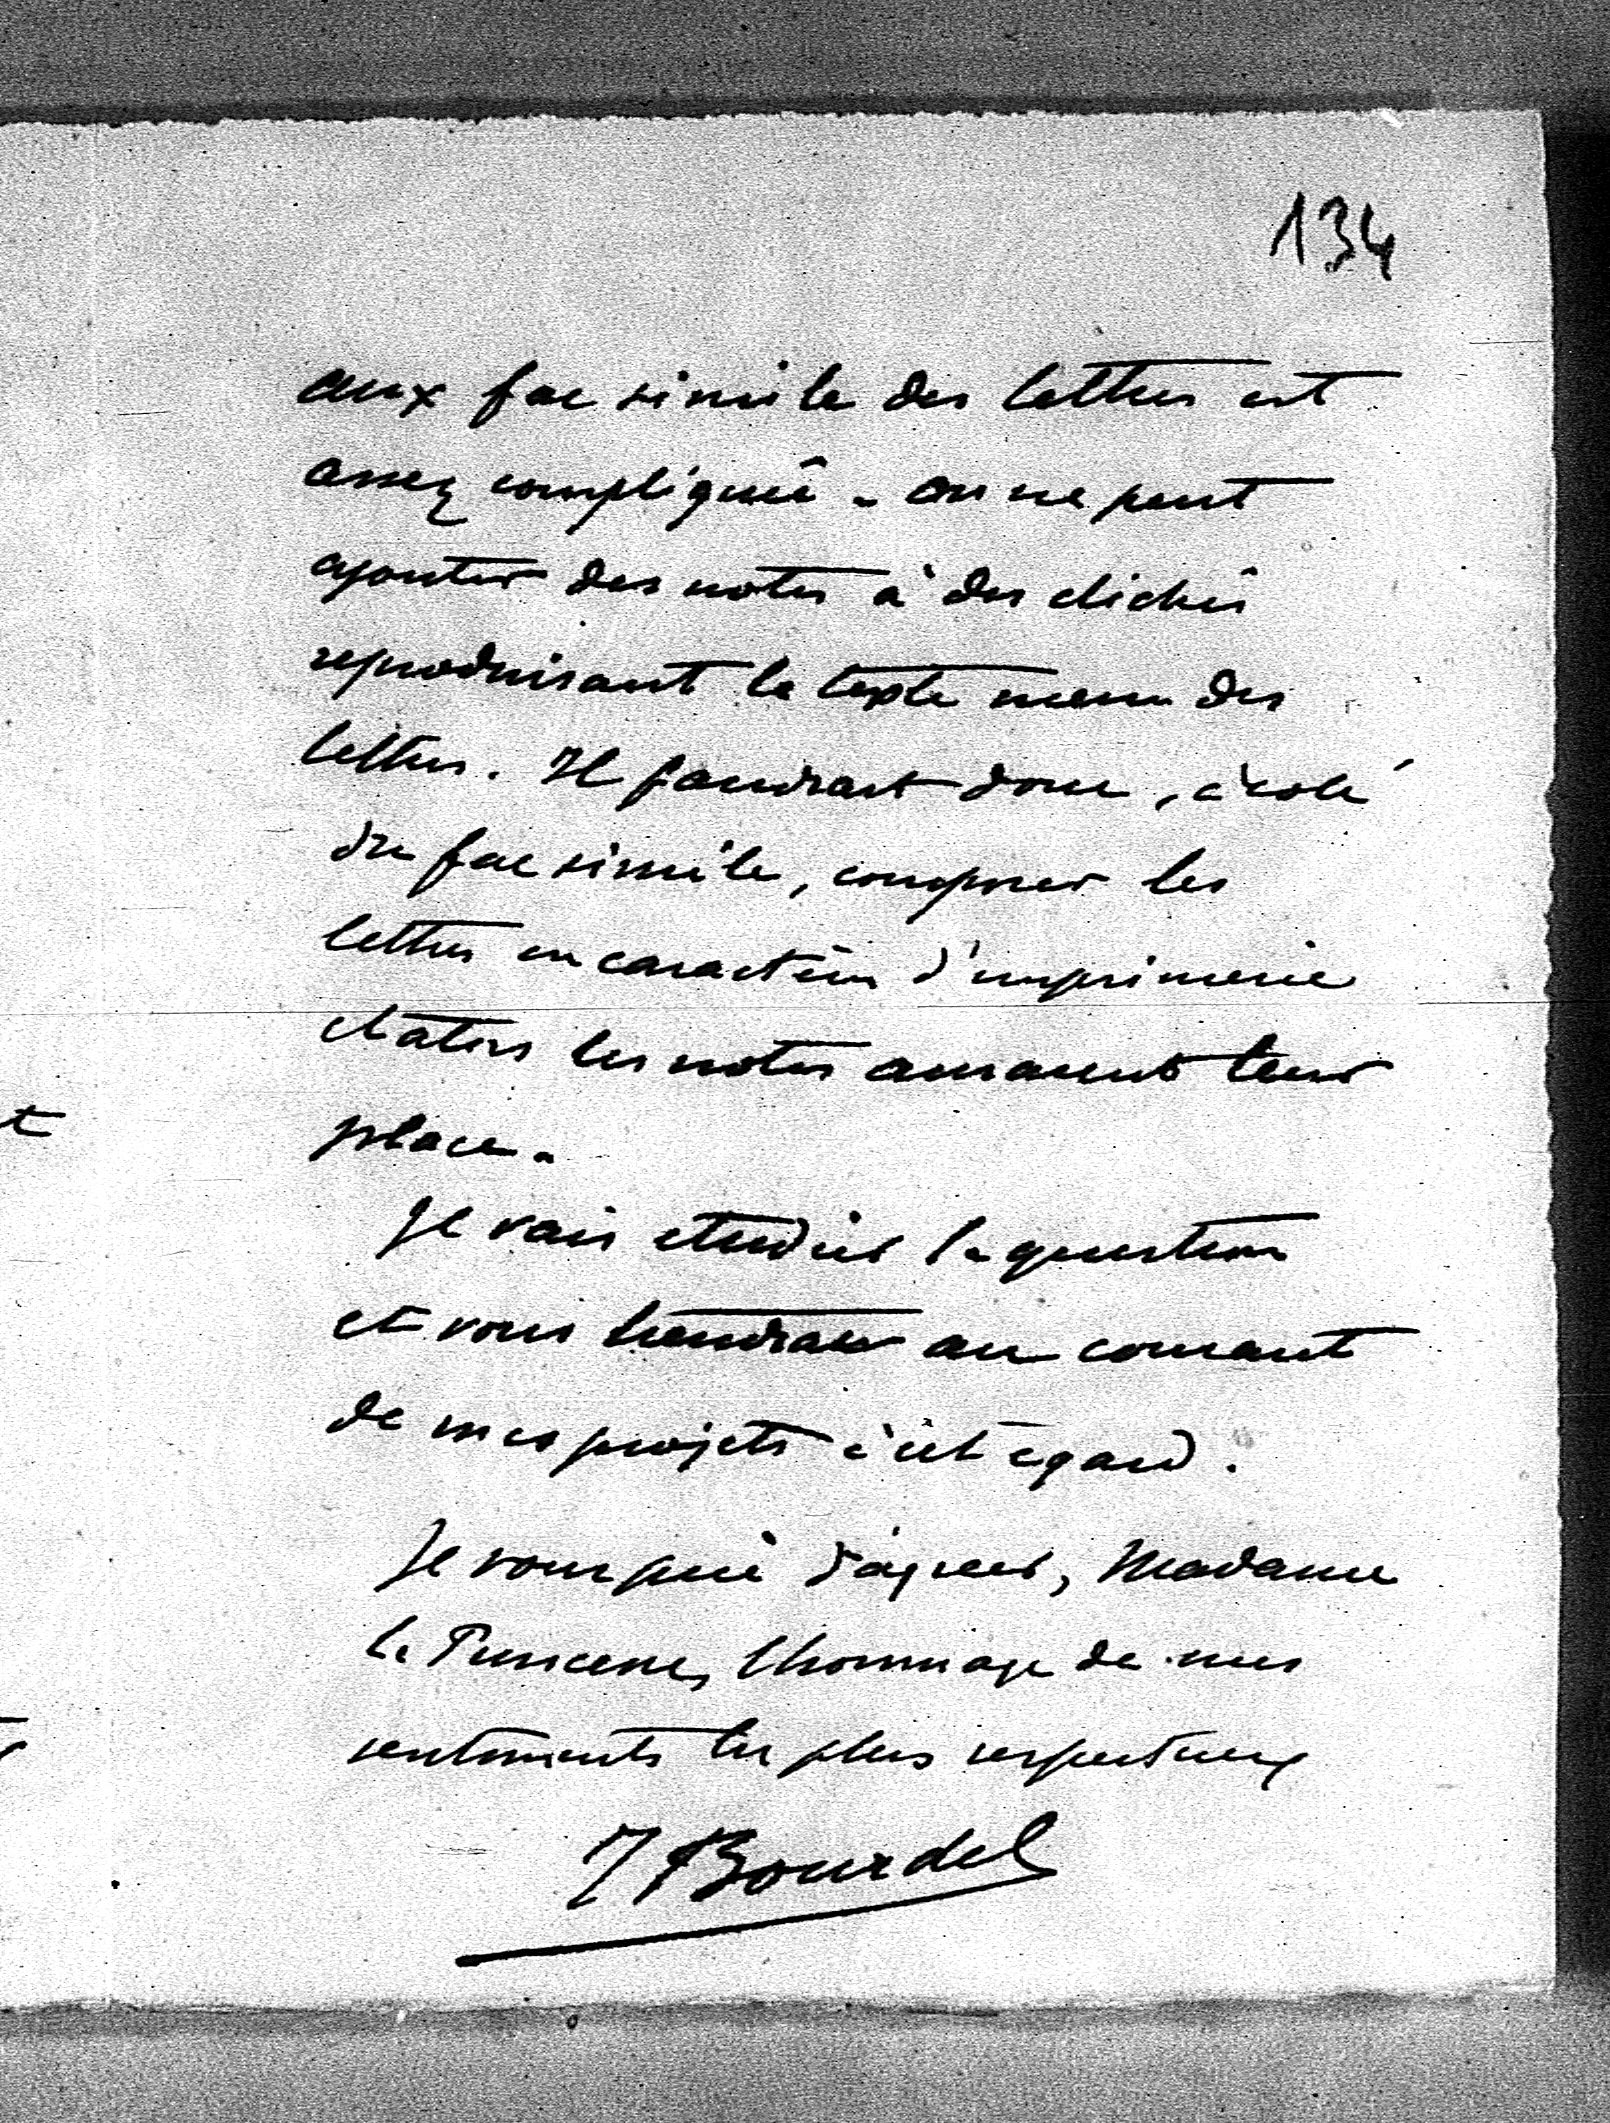 134
aux fac simile des lettres est
assez compliquée. On ne peut
ajouter des notes à des clichés
reproduisant le texte meme des
lettres. Il faudrait donc, à coté
du fac simile, composer les
lettres en caractères d'imprimerie
et alors les notes auraient leur
place.
Je vais etudier la question
et vous tiendrai au courant
de mes projets à cet egard.
Je vous prie d'agreer, Madame
la Princesse, l'hommage de mes
sentiments les plus respectueux
J Bourdel